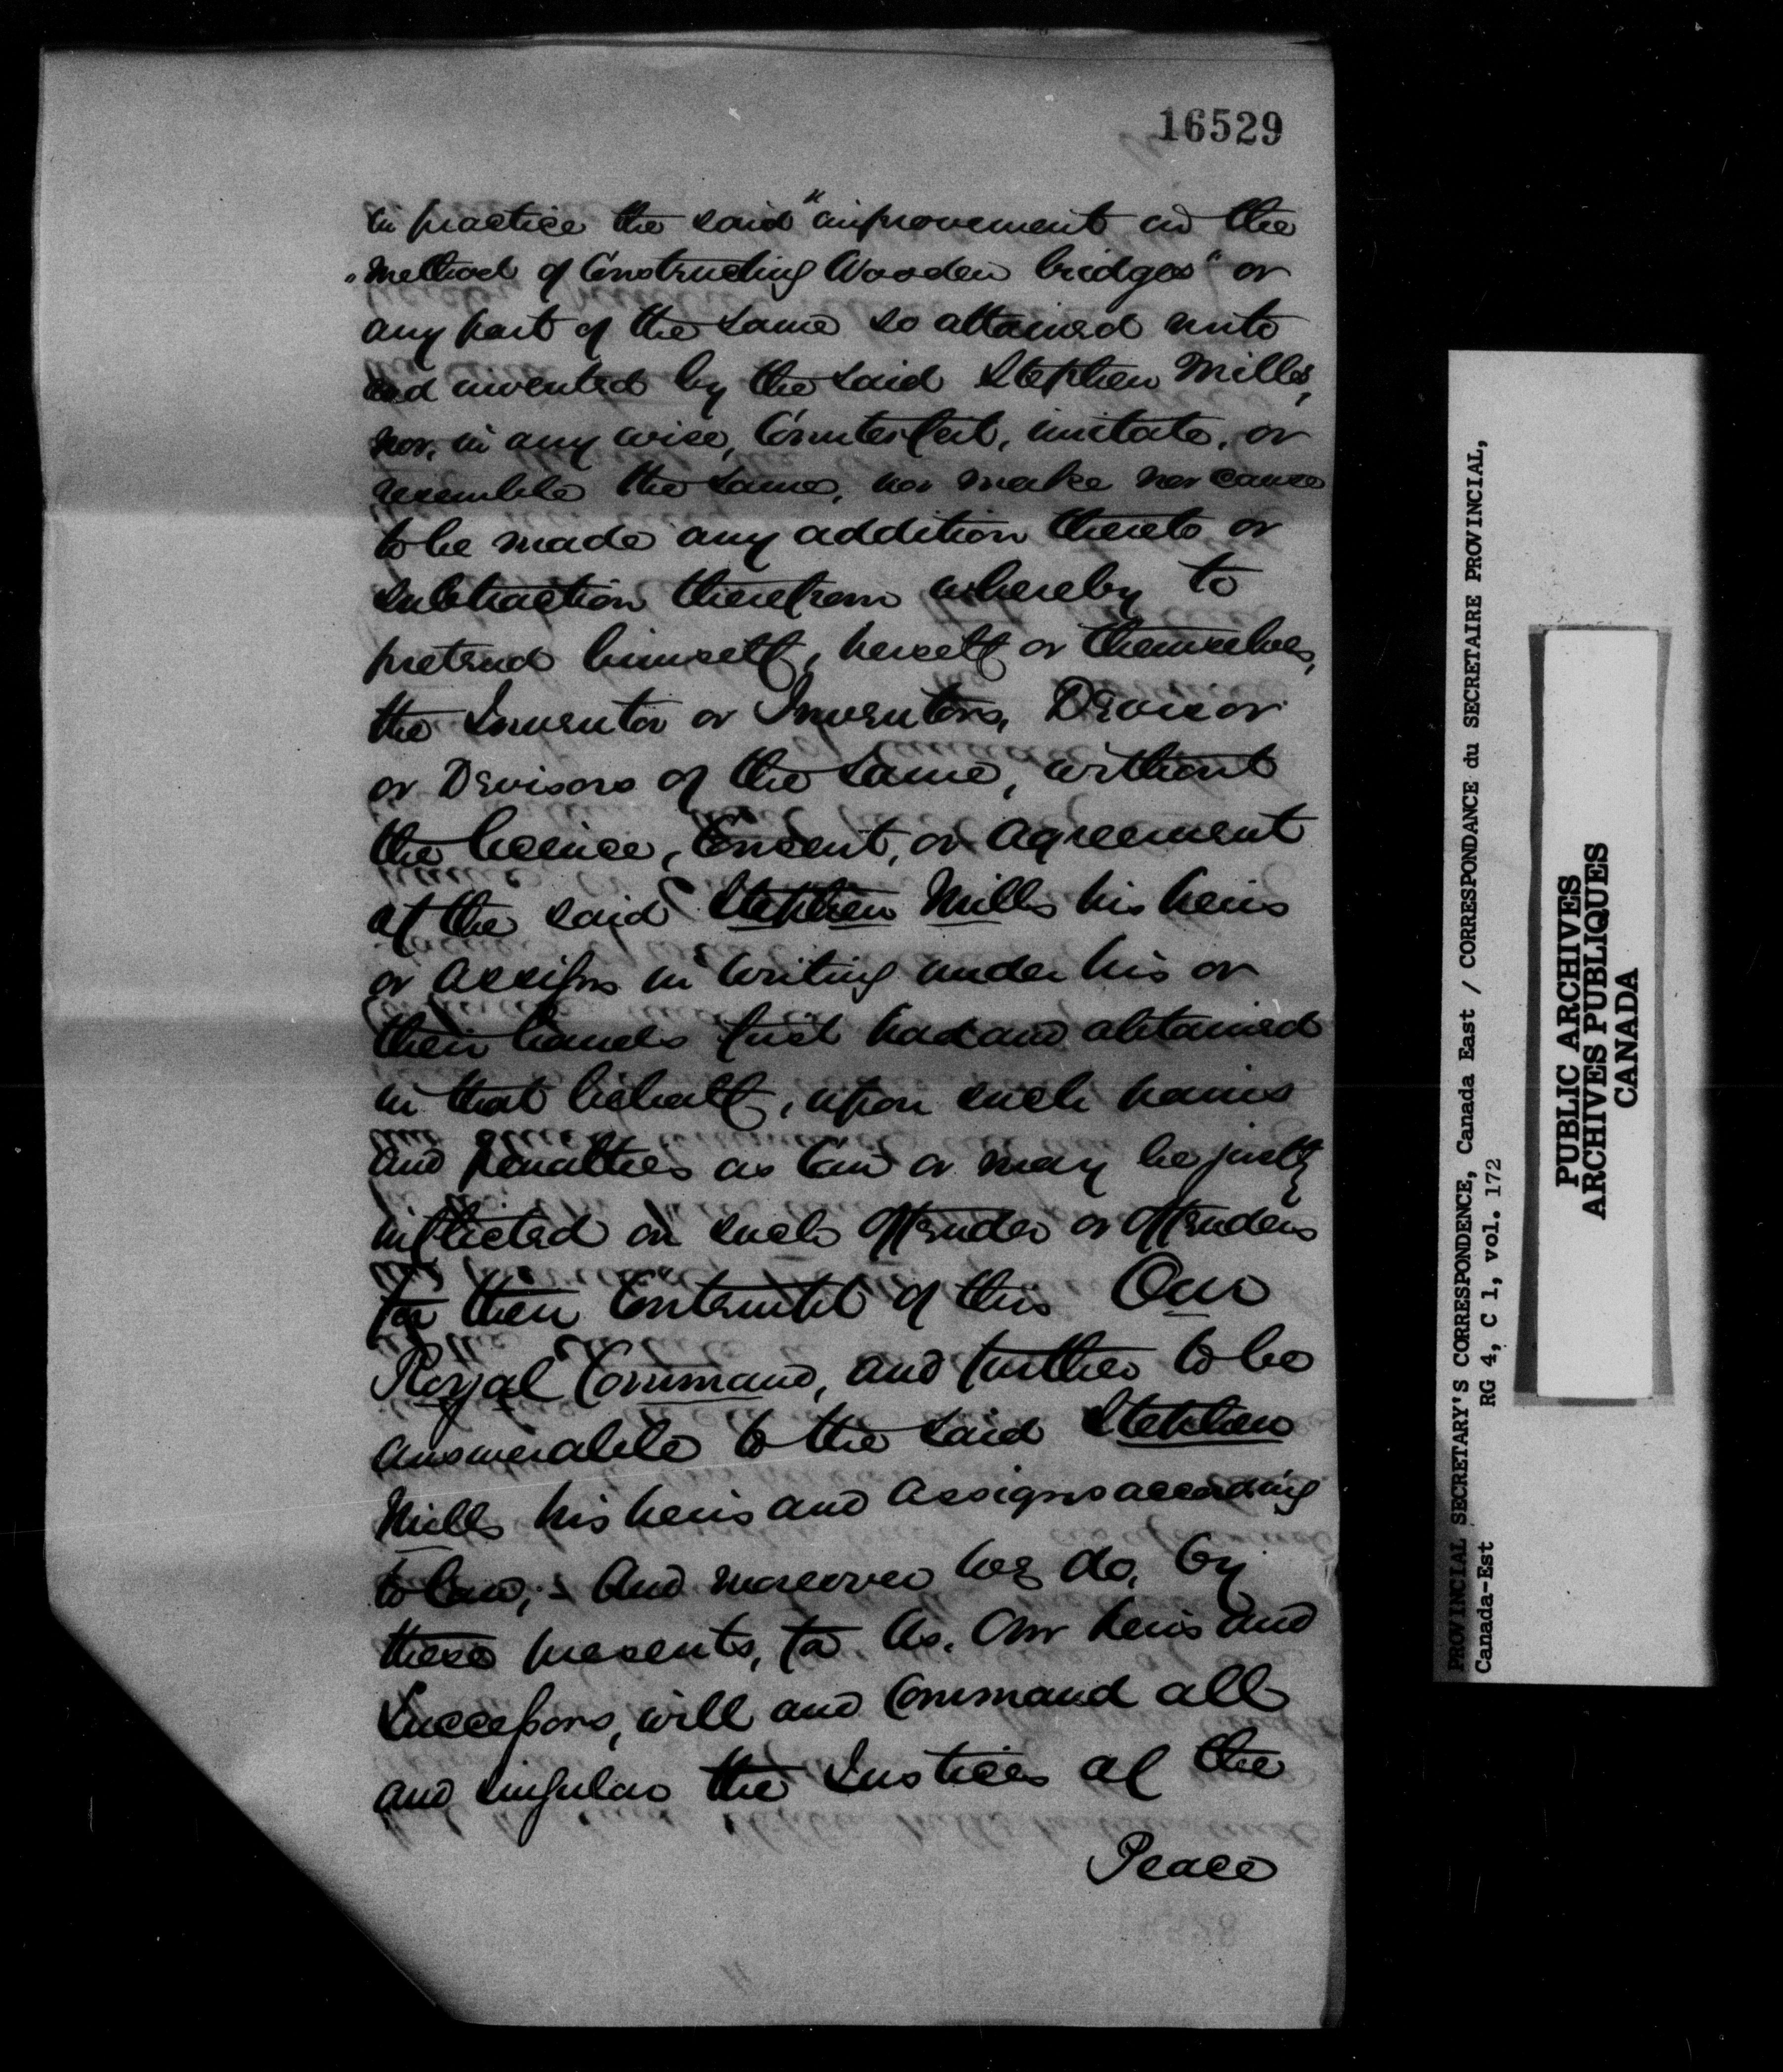 16529
in practice the said "improvement in the
"Method of Constructing Wooden bridges" or
any part of the same so attained unto
and invented by the said Stephen Mills,
nor, in any wise, Counterfeit, imitate, or
resemble the same, nor make nor cause
to be made any addition thereto or
Subtraction therefrom whereby to
pretend himself, herself or themselves,
the Inventor or Inventors, Devisor
or Devisors of the same, without
the licence, Consent, or agreement
of the said Stephen Mills his heirs
or assigns in writing under his or
their hands first had and obtained
in that behalf, upon such pains
and penalties as can or may be justly
inflicted on such offender or offenders
for their Contempt of this Our
Royal Command, and further to be
answerable to the said Stephen
Mills his heirs and assigns according
to law; - And moreover We do, by
these presents, for Us, Our heirs and
Successors, will and Command all
and singular the Justices of the
Peace
PROVINCIAL SECRETARY'S CORRESPONDENCE, Canada East / CORRESPONDANCE du SECRETAIRE PROVINCIAL,
Canada-Est RG 4, C 1, vol. 172
PUBLIC ARCHIVES
ARCHIVES PUBLIQUES
CANADA